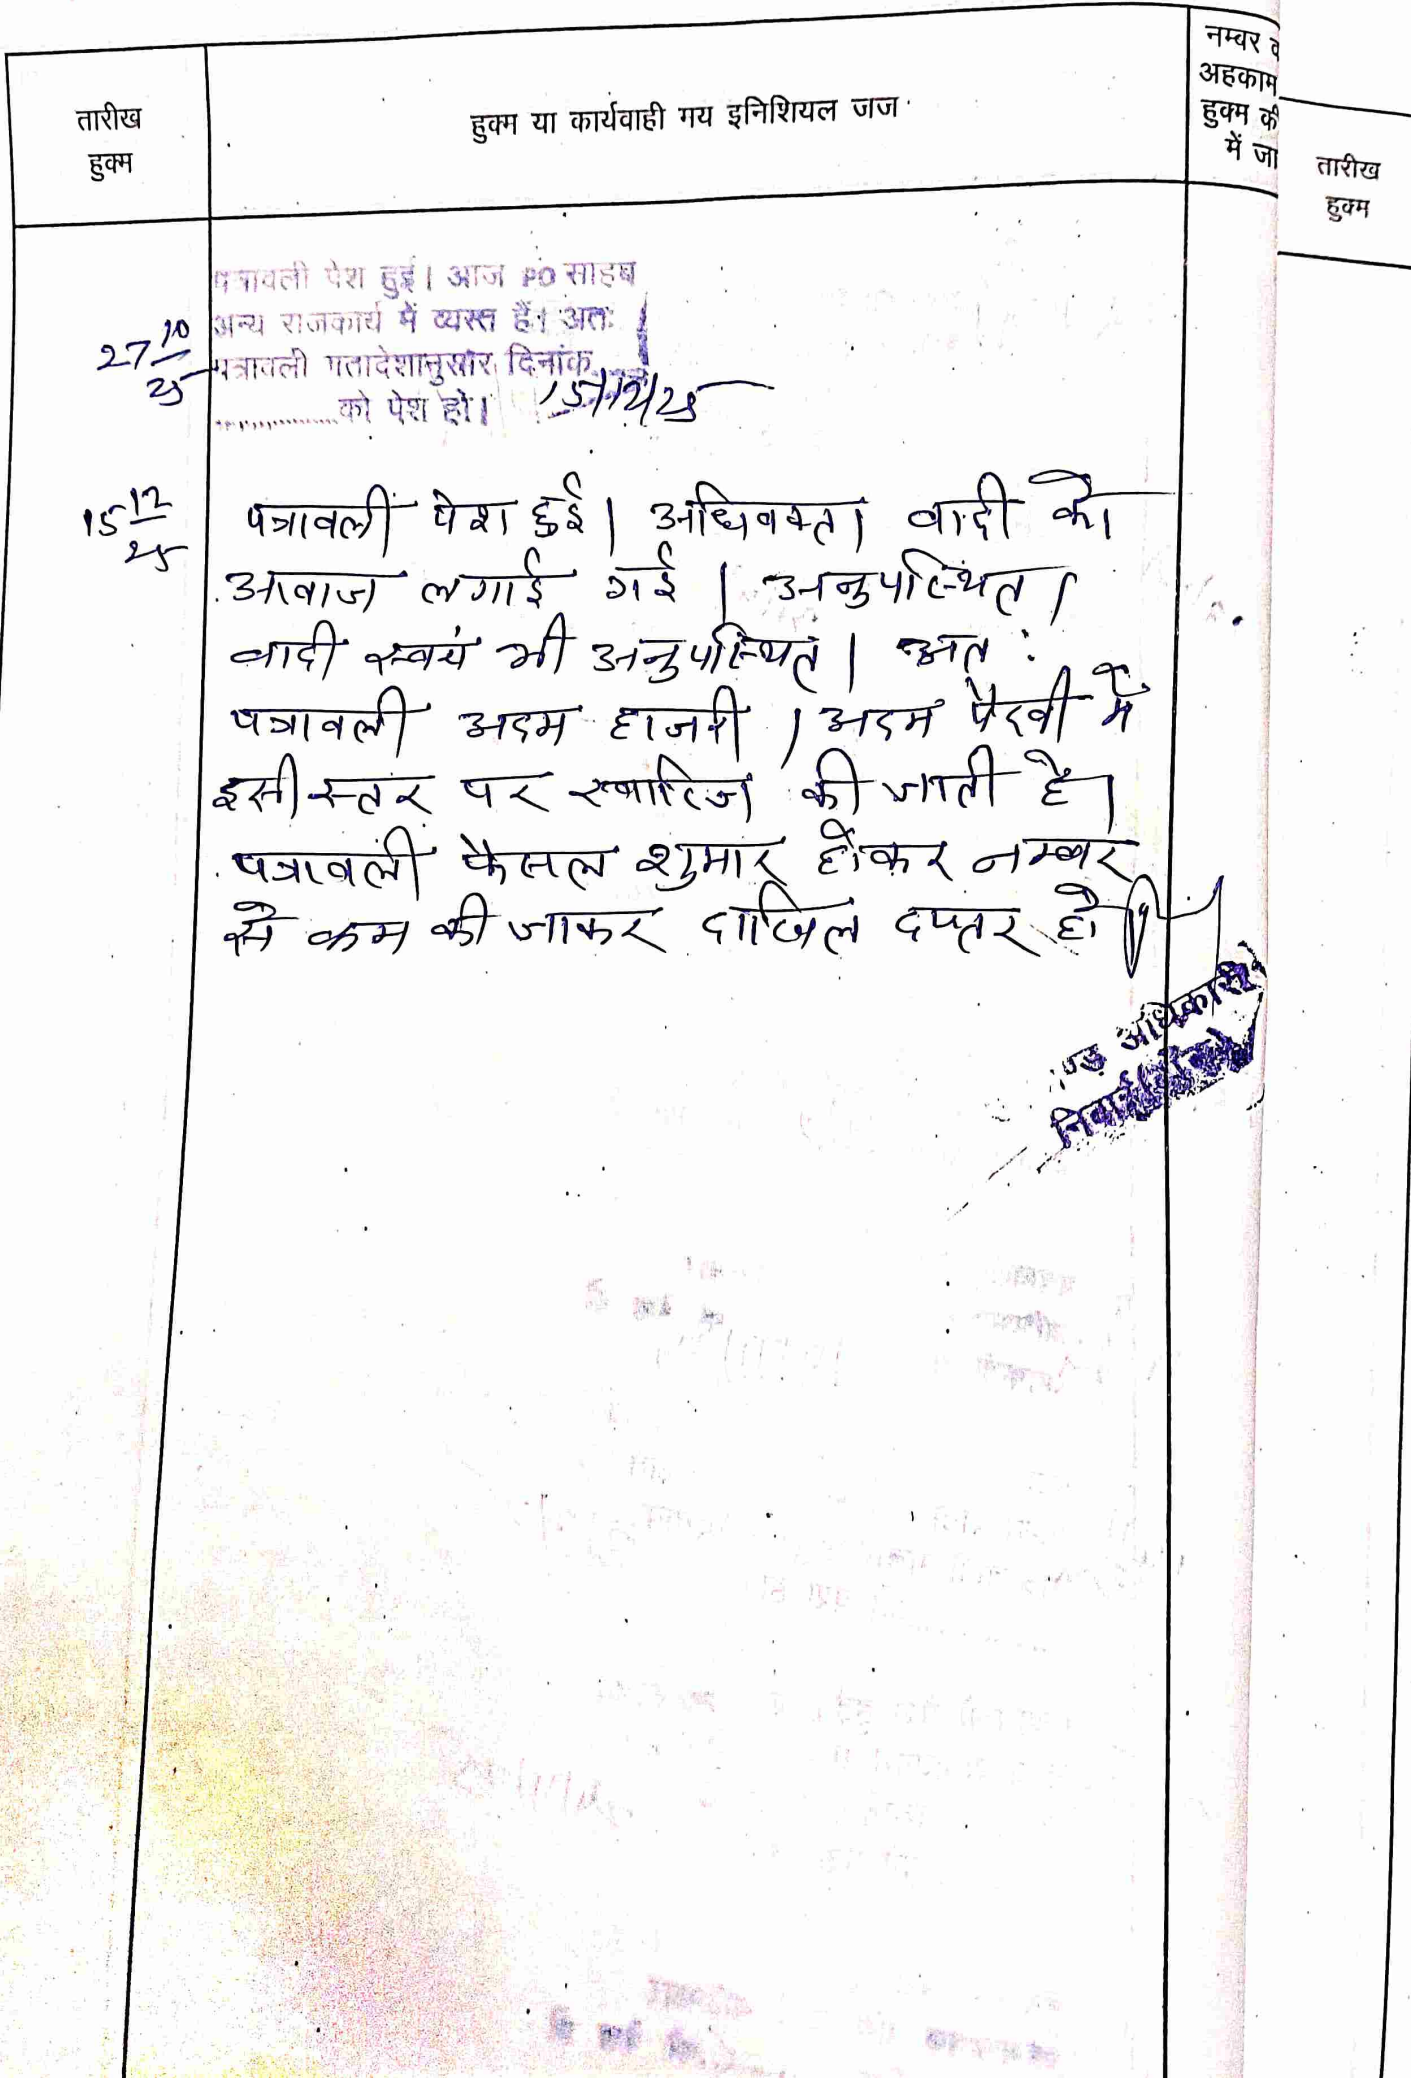 तारीख
हुक्म
हुक्म या कार्यवाही मय इनिशियल जज
नम्बर
अहकाम
हुक्म की
में जा
तारीख
हुक्म
पत्रावली पेश हुई। आज PO साहब
अन्य राजकार्य में व्यस्त हैं। अतः
पत्रावली गतादेशानुसार दिनांक
को पेश हो। 15/12/25
27 10/25
15 12/25
पत्रावली पेश हुई। अधिवक्ता वादी को
आवाज लगाई गई। अनुपस्थित।
वादी स्वयं भी अनुपस्थित। अत:
पत्रावली अदम हाजरी, अदम पैरवी में
इसी स्तर पर खारिज की जाती है।
पत्रावली फैसल शुमार होकर नम्बर
से कम की जाकर दाखिल दफ्तर हो
अधिकारी
निवाई